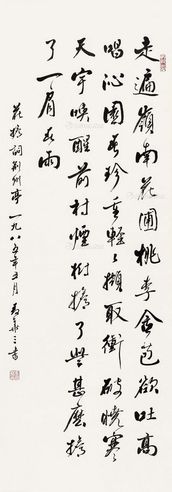 走遍嶺南花圃桃李含苞欲吐高
唱沁園春珍重輕輕擷取衝破曉寒
天宇喚醒前村煙樹擔了些甚麽擔
了一肩春雨
花擔詞荆州亭一九八五年五月